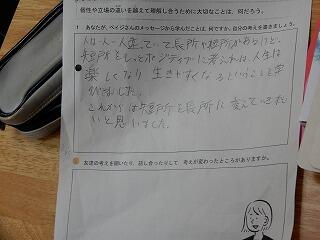 個性や立場の違いを越えて理解し合うために大切なことは、何だろう。
1 あなたが、ペイジさんのメッセージから学んだことは、何ですか。自分の考えを書きましょう。
人は一人一人違っていて長所や短所があるけど、
短所をもっとポジティブに考えれば、人生は
楽しくなり生きやすくなるということを学
びました。
これからは短所を長所に変えていきた
いと思いました。
友達の考えを聞いたり、話し合ったりして 考えが変わったところがありますか。